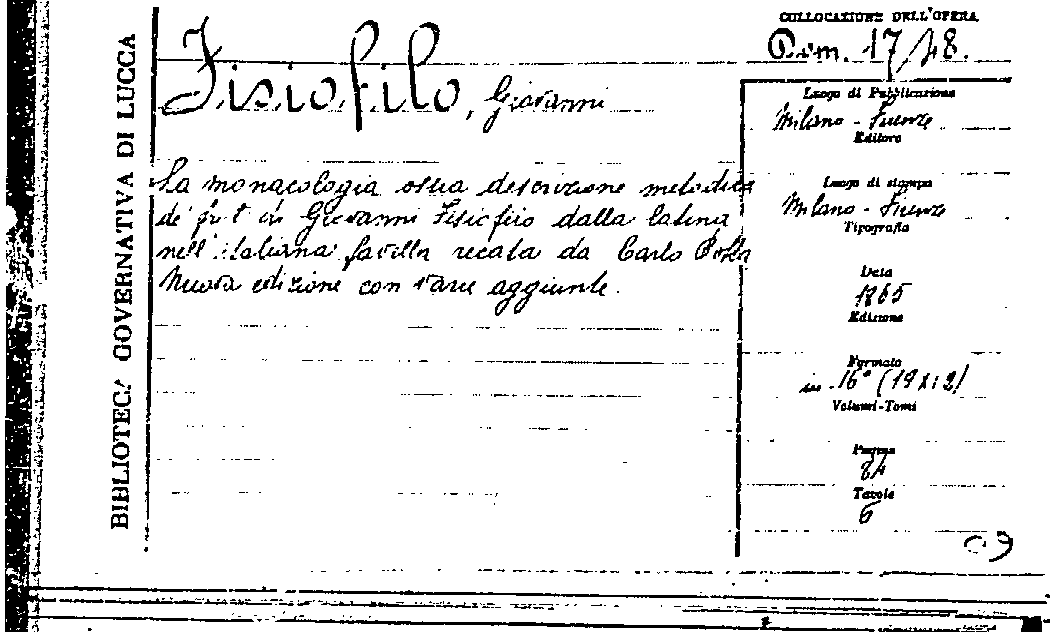 BIBLIOTECA GOVERNATIVA DI LUCCA
COLLOCAZIONE DELL'OPERA
Rom. 17/48.
Fisiofilo, Giovanni
La monacologia ossia descrizione metodica
de' frati di Giovanni Fisiofilo dalla latina
nell'italiana favella recata da Carlo Botta
Nuova edizione con varie aggiunte.
Luogo di Pubblicazione
Milano - Firenze
Editore
Luogo di stampa
Milano - Firenze
Tipografia
Data
1865
Edizione
Formato
in-16° (19x12)
Volumi-Tomi
Pagine
84
Tavole
6